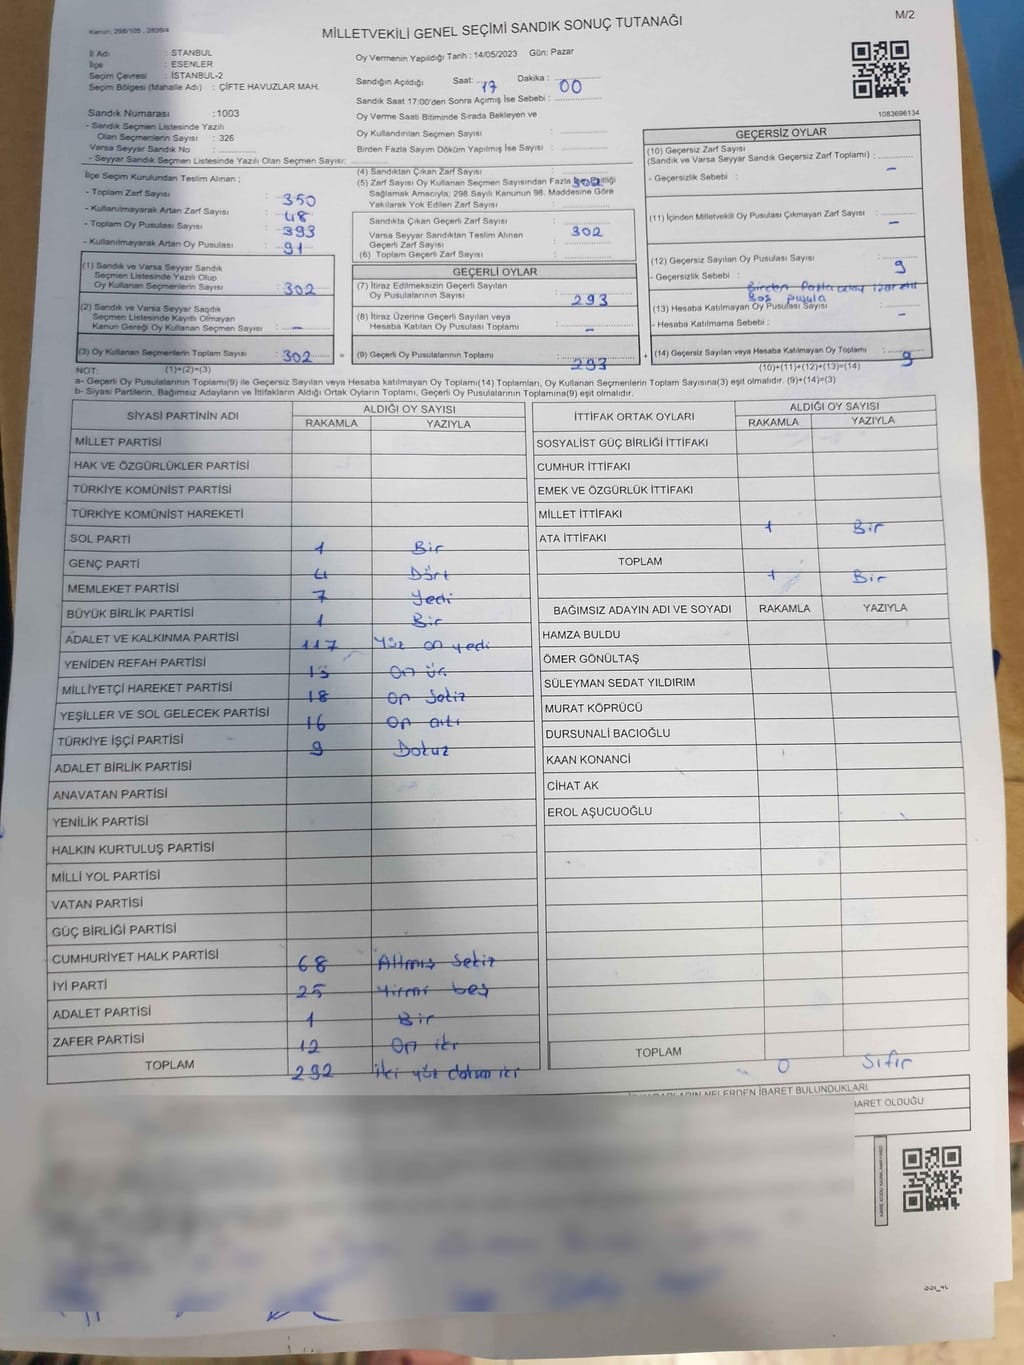 Kanun: 298/105 , 2839/4
MİLLETVEKİLİ GENEL SEÇİMİ SANDIK SONUÇ TUTANAĞI
M/2
İl Adı : STANBUL
İlçe : ESENLER
Seçim Çevresi : İSTANBUL-2
Seçim Bölgesi (Mahalle Adı) : ÇİFTE HAVUZLAR MAH.
Sandık Numarası :1003
- Sandık Seçmen Listesinde Yazılı
Olan Seçmenlerin Sayısı : 326
Varsa Seyyar Sandık No :
- Seyyar Sandık Seçmen Listesinde Yazılı Olan Seçmen Sayısı:
Oy Vermenin Yapıldığı Tarih : 14/05/2023 Gün: Pazar
Sandığın Açıldığı Saat: 17 Dakika : 00
Sandık Saat 17:00'den Sonra Açımış İse Sebebi :
Oy Verme Saati Bitiminde Sırada Bekleyen ve
Oy Kullandırılan Seçmen Sayısı :
Birden Fazla Sayım Döküm Yapılmış İse Sayısı :
1083696134
İlçe Seçim Kurulundan Teslim Alınan ;
- Toplam Zarf Sayısı : 350
- Kullanılmayarak Artan Zarf Sayısı : 48
- Toplam Oy Pusulası Sayısı : 393
- Kullanılmayarak Artan Oy Pusulası : 91
(1) Sandık ve Varsa Seyyar Sandık
Seçmen Listesinde Yazılı Olup
Oy Kullanan Seçmenlerin Sayısı : 302
(2) Sandık ve Varsa Seyyar Saqdık
Seçmen Listesinde Kayıtlı Olmayan
Kanun Gereği Oy Kullanan Seçmen Sayısı : -
(3) Oy Kullanan Seçmenlerin Toplam Sayısı : 302
(1)+(2)=(3)
(4) Sandıktan Çıkan Zarf Sayısı : 302
(5) Zarf Sayısı Oy Kullanan Seçmen Sayısından Fazla
Sağlamak Amacıyla; 298 Sayılı Kanunun 98. Maddesine Göre
Yakılarak Yok Edilen Zarf Sayısı :
Sandıkta Çıkan Geçerli Zarf Sayısı : 302
Varsa Seyyar Sandıktan Teslim Alınan
Geçerli Zarf Sayısı
(6) Toplam Geçerli Zarf Sayısı :
GEÇERLİ OYLAR
(7) İtiraz Edilmeksizin Geçerli Sayılan
Oy Pusulalarının Sayısı : 293
(8) İtiraz Üzerine Geçerli Sayılan veya
Hesaba Katılan Oy Pusulası Toplamı : -
= (9) Geçerli Oy Pusulalarının Toplamı : 293
GEÇERSİZ OYLAR
(10) Geçersiz Zarf Sayısı
(Sandık ve Varsa Seyyar Sandık Geçersiz Zarf Toplamı) : -
- Geçersizlik Sebebi :
(11) İçinden Milletvekili Oy Pusulası Çıkmayan Zarf Sayısı : -
(12) Geçersiz Sayılan Oy Pusulası Sayısı : 9
- Geçersizlik Sebebi :
Birden Fazla
Boş Pusula
(13) Hesaba Katılmayan Oy Pusulası Sayısı : -
- Hesaba Katılmama Sebebi :
+ (14) Geçersiz Sayılan veya Hesaba Katılmayan Oy Toplamı : 9
(10)+(11)+(12)+(13)=(14)
NOT:
a- Geçerli Oy Pusulalarının Toplamı(9) ile Geçersiz Sayılan veya Hesaba katılmayan Oy Toplamı(14) Toplamları, Oy Kullanan Seçmenlerin Toplam Sayısına(3) eşit olmalıdır. (9)+(14)=(3)
b- Siyasi Partilerin, Bağımsız Adayların ve İttifakların Aldığı Ortak Oyların Toplamı, Geçerli Oy Pusulalarının Toplamına(9) eşit olmalıdır.
SİYASİ PARTİNİN ADI ALDIĞI OY SAYISI
RAKAMLA YAZIYLA
MİLLET PARTİSİ
HAK VE ÖZGÜRLÜKLER PARTİSİ
TÜRKİYE KOMÜNİST PARTİSİ
TÜRKİYE KOMÜNİST HAREKETİ
SOL PARTİ 1 Bir
GENÇ PARTİ 4 Dört
MEMLEKET PARTİSİ 7 Yedi
BÜYÜK BİRLİK PARTİSİ 1 Bir
ADALET VE KALKINMA PARTİSİ 117 Yüz on yedi
YENİDEN REFAH PARTİSİ 13 On üç
MİLLİYETÇİ HAREKET PARTİSİ 18 On Sekiz
YEŞİLLER VE SOL GELECEK PARTİSİ 16 On altı
TÜRKİYE İŞÇİ PARTİSİ 9 Dokuz
ADALET BİRLİK PARTİSİ
ANAVATAN PARTİSİ
YENİLİK PARTİSİ
HALKIN KURTULUŞ PARTİSİ
MİLLİ YOL PARTİSİ
VATAN PARTİSİ
GÜÇ BİRLİĞİ PARTİSİ
CUMHURİYET HALK PARTİSİ 68 Altmış Sekiz
İYİ PARTİ 25 Yirmi beş
ADALET PARTİSİ 1 Bir
ZAFER PARTİSİ 12 On iki
TOPLAM 292 iki yüz doksan iki
İTTİFAK ORTAK OYLARI ALDIĞI OY SAYISI
RAKAMLA YAZIYLA
SOSYALİST GÜÇ BİRLİĞİ İTTİFAKI
CUMHUR İTTİFAKI
EMEK VE ÖZGÜRLÜK İTTİFAKI
MİLLET İTTİFAKI 1 Bir
ATA İTTİFAKI
TOPLAM 1 Bir
BAĞIMSIZ ADAYIN ADI VE SOYADI RAKAMLA YAZIYLA
HAMZA BULDU
ÖMER GÖNÜLTAŞ
SÜLEYMAN SEDAT YILDIRIM
MURAT KÖPRÜCÜ
DURSUNALİ BACIOĞLU
KAAN KONANCİ
CİHAT AK
EROL AŞUCUOĞLU
TOPLAM 0 Sıfır
NELERDEN İBARET BULUNDUKLARI
BARET OLDUĞU